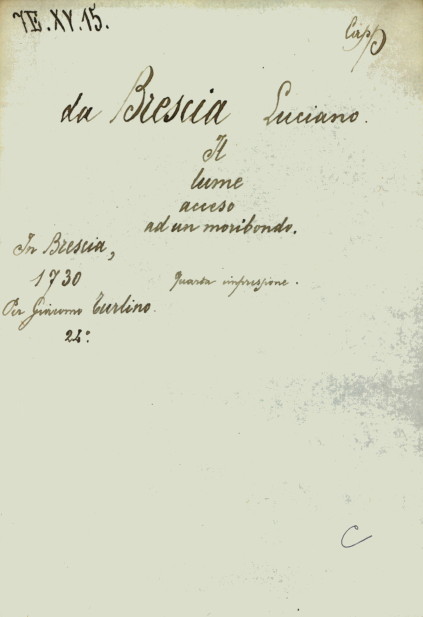 7E.XV.15.
Capp
da Brescia Luciano.
Il
lume
acceso
ad un moribondo.
In Brescia,
1730 Quarta impressione.
Per Giacomo Turlino.
24°.
C